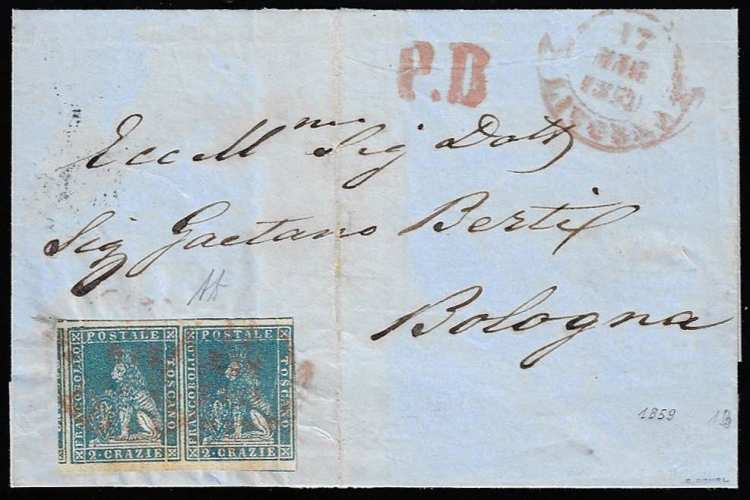 P.D
17
MAR
Ecc Mmo Sig Dott
Sig Gaetano Berti
Bologna
FRANCOBOLLO POSTALE TOSCANO
2·CRAZIE
FRANCOBOLLO POSTALE TOSCANO
2·CRAZIE
1859